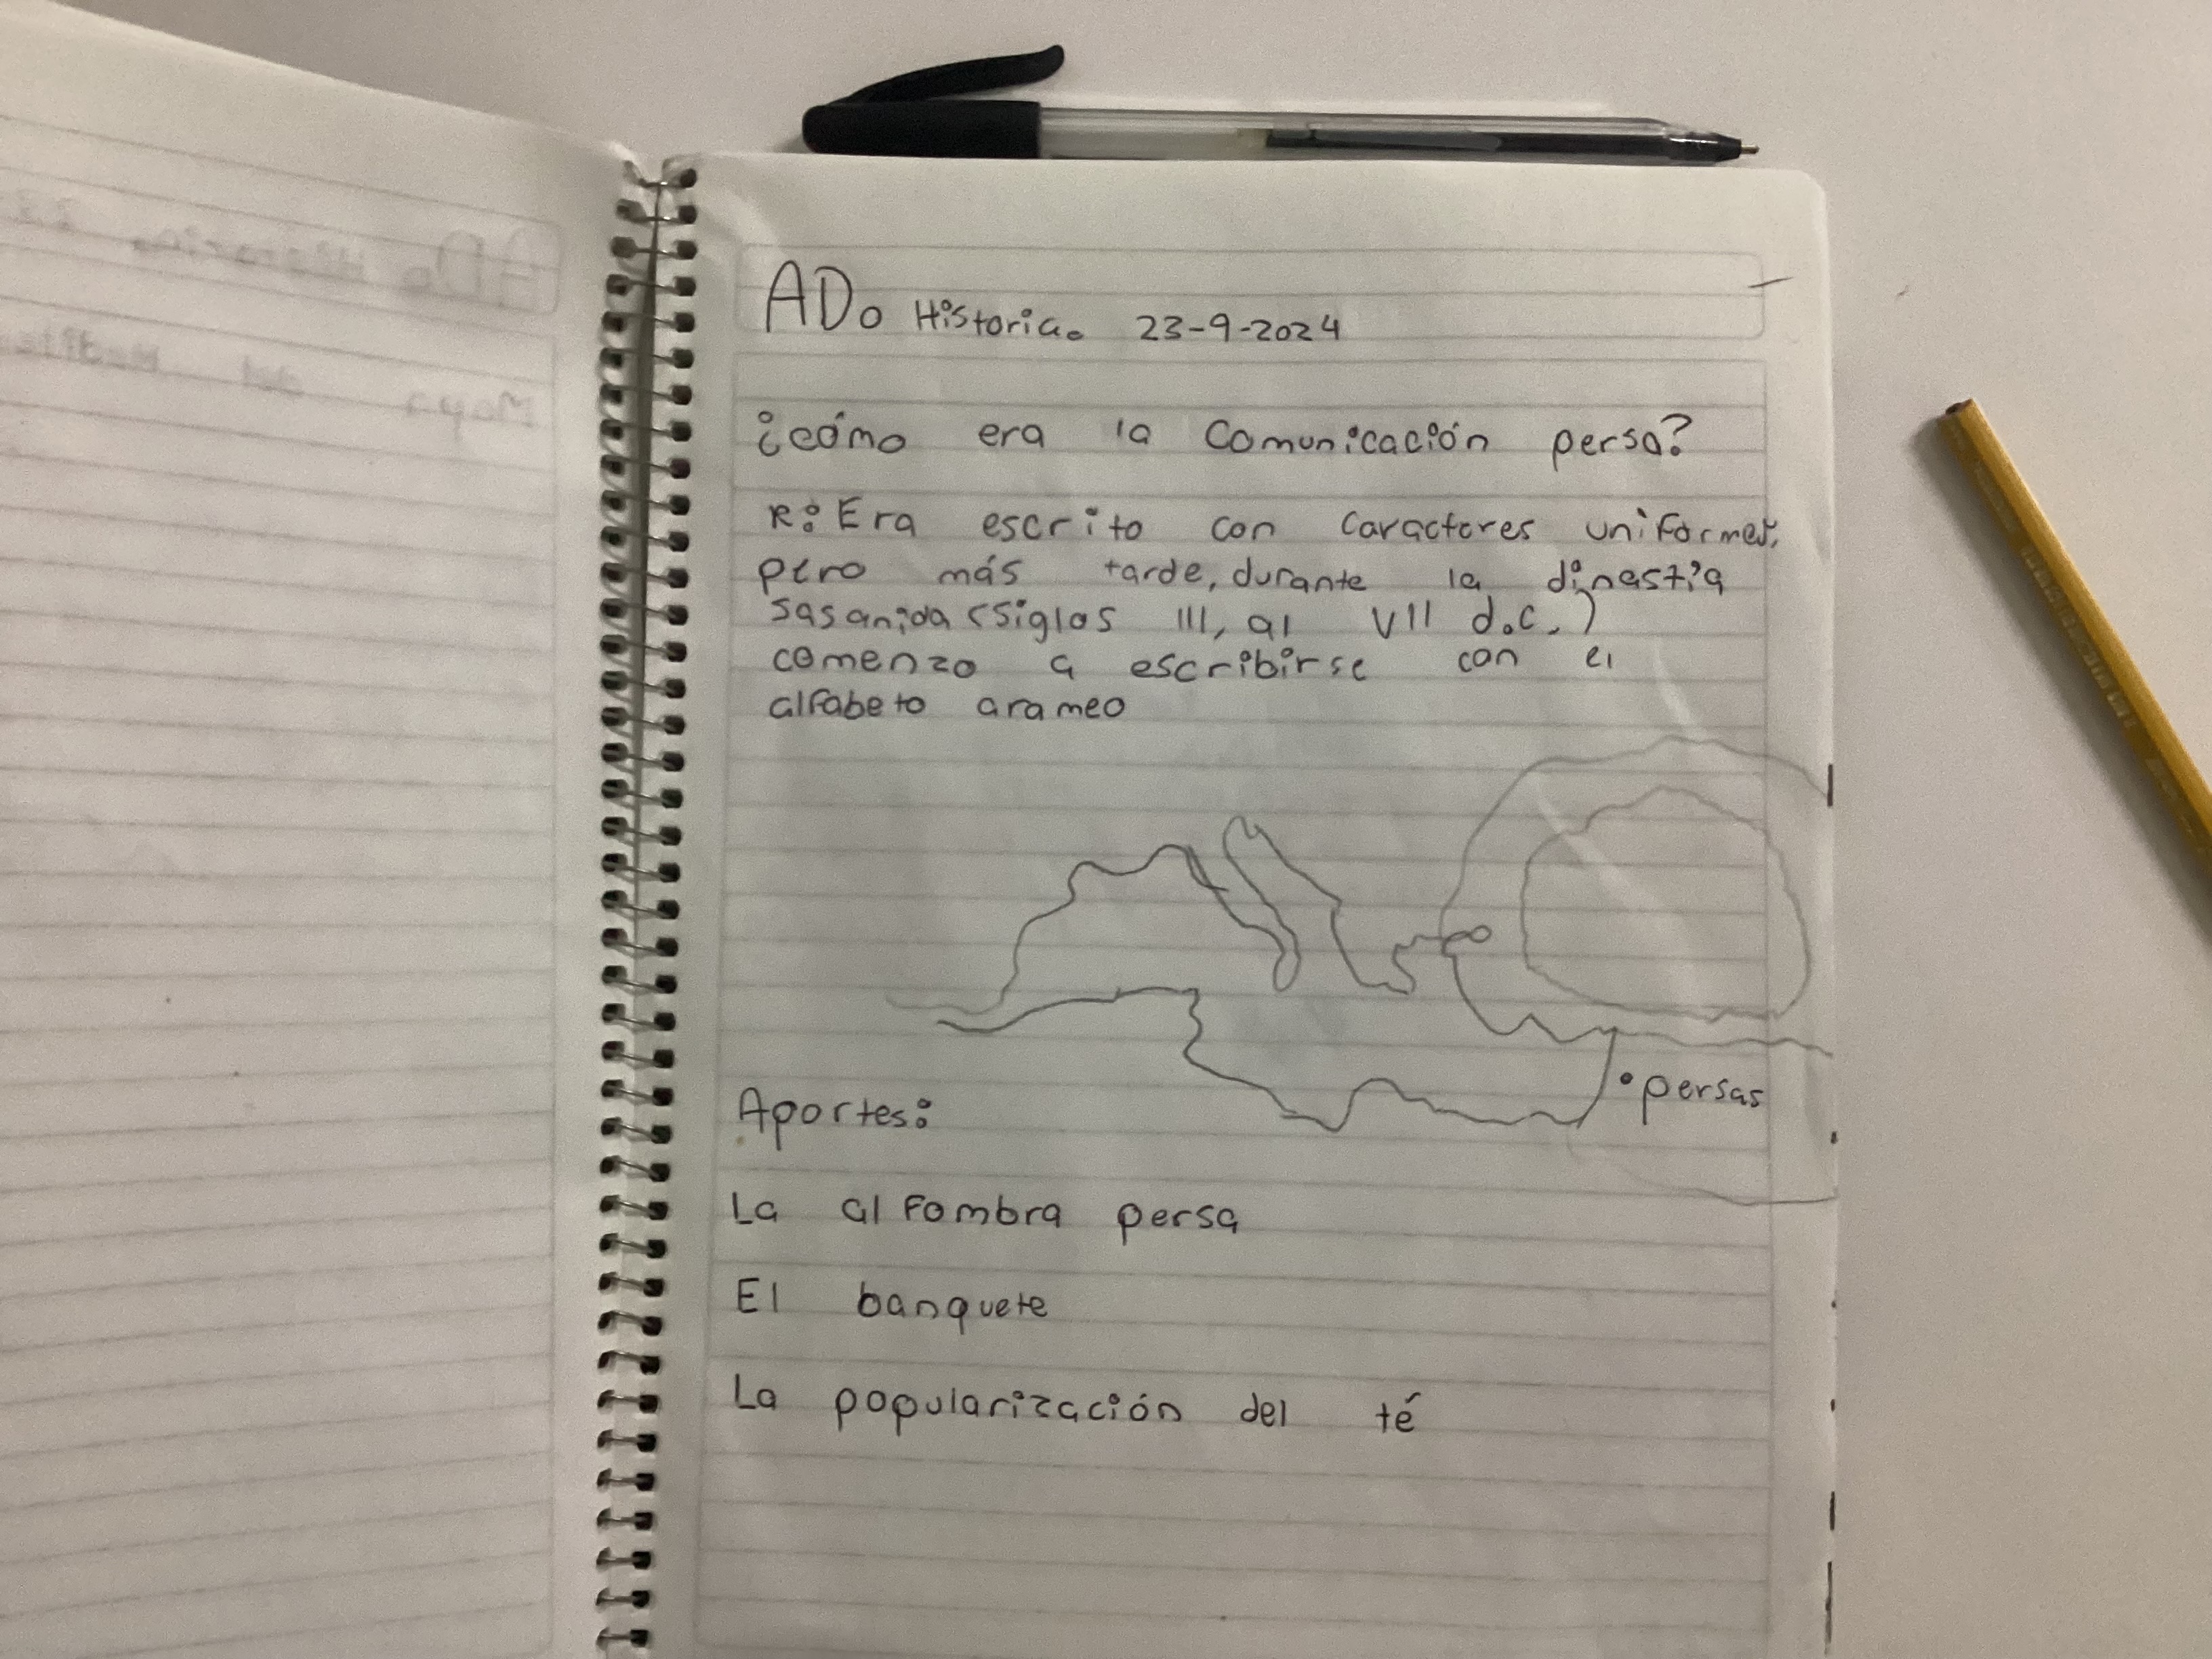 ADo Historia. 23-9-2024
¿cómo era la Comunicación persa?
R: Era escrito con caractores uniformes,
pero más tarde, durante la dinastia
sasanida (siglos III, al VII d.c.)
comenzo a escribirse con el
alfabeto arameo
• persas
Aportes:
La alfombra persa
El banquete
La popularización del té